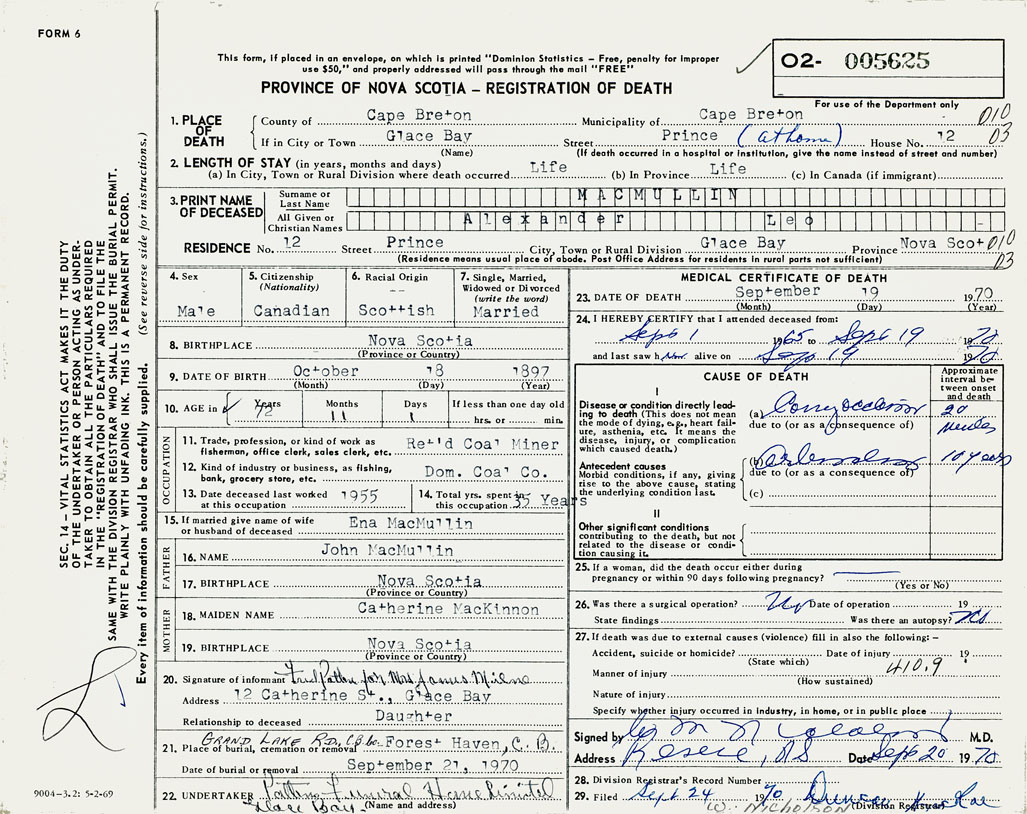 FORM 6
This form, if placed in an envelope, on which is printed "Dominion Statistics – Free, penalty for improper
use $50," and properly addressed will pass through the mail "FREE"
PROVINCE OF NOVA SCOTIA – REGISTRATION OF DEATH
02- 005625
For use of the Department only
1. PLACE OF DEATH
County of Cape Breton Municipality of Cape Breton 010
If in City or Town Glace Bay Street Prince (at home) House No. 12 03
(Name) (If death occurred in a hospital or institution, give the name instead of street and number)
2. LENGTH OF STAY (in years, months and days)
(a) In City, Town or Rural Division where death occurred Life (b) In Province Life (c) In Canada (if immigrant)
3. PRINT NAME OF DECEASED
Surname or Last Name MACMULLIN
All Given or Christian Names Alexander Leo -
RESIDENCE No. 12 Street Prince City, Town or Rural Division Glace Bay Province Nova Scot 010
(Residence means usual place of abode. Post Office Address for residents in rural parts not sufficient) 03
4. Sex
Male
5. Citizenship
(Nationality)
Canadian
6. Racial Origin
--
Scottish
7. Single, Married,
Widowed or Divorced
(write the word)
Married
8. BIRTHPLACE Nova Scotia
(Province or Country)
9. DATE OF BIRTH October 18 1897
(Month) (Day) (Year)
10. AGE in 72 Years Months 11 Days 1 If less than one day old
hrs. or min.
OCCUPATION
11. Trade, profession, or kind of work as
fisherman, office clerk, sales clerk, etc. Ret'd Coal Miner
12. Kind of industry or business, as fishing,
bank, grocery store, etc. Dom. Coal Co.
13. Date deceased last worked
at this occupation 1955
14. Total yrs. spent in
this occupation 35 Years
15. If married give name of wife
or husband of deceased Ena MacMullin
FATHER
16. NAME John MacMullin
17. BIRTHPLACE Nova Scotia
(Province or Country)
MOTHER
18. MAIDEN NAME Catherine MacKinnon
19. BIRTHPLACE Nova Scotia
(Province or Country)
20. Signature of informant Fred Patten for Mrs James Milne
Address 12 Catherine St., Glace Bay
Relationship to deceased Daughter
GRAND LAKE RD, C.B. Co.
21. Place of burial, cremation or removal Forest Haven, C. B.
Date of burial or removal September 21, 1970
22. UNDERTAKER Patten Funeral Home Limited
Glace Bay (Name and address)
MEDICAL CERTIFICATE OF DEATH
23. DATE OF DEATH September 19 1970
(Month) (Day) (Year)
24. I HEREBY CERTIFY that I attended deceased from:
Sept 1 1965 to Sept 19 1970
and last saw him alive on Sept 19 1970
CAUSE OF DEATH
Approximate
interval be-
tween onset
and death
I
Disease or condition directly lead-
ing to death (This does not mean
the mode of dying, e.g., heart fail-
ure, asthenia, etc. It means the
disease, injury, or complication
which caused death.)
(a) occlusion 20
due to (or as a consequence of)
Antecedent causes
Morbid conditions, if any, giving
rise to the above cause, stating
the underlying condition last.
(b) 10 years
due to (or as a consequence of)
(c)
II
Other significant conditions
contributing to the death, but not
related to the disease or condi-
tion causing it.
25. If a woman, did the death occur either during
pregnancy or within 90 days following pregnancy?
(Yes or No)
26. Was there a surgical operation? No Date of operation 19
State findings Was there an autopsy?
27. If death was due to external causes (violence) fill in also the following: –
Accident, suicide or homicide? Date of injury 19
(State which)
Manner of injury 410.9
(How sustained)
Nature of injury
Specify whether injury occurred in industry, in home, or in public place
Signed by M.D.
Address Reserve, NS Date Sept 20 1970
28. Division Registrar's Record Number
29. Filed Sept 24 1970 Duncan
W. Nicholson (Division Registrar)
SEC. 14 – VITAL STATISTICS ACT MAKES IT THE DUTY
OF THE UNDERTAKER OR PERSON ACTING AS UNDER-
TAKER TO OBTAIN ALL THE PARTICULARS REQUIRED
IN THE "REGISTRATION OF DEATH" AND TO FILE THE
SAME WITH THE DIVISION REGISTRAR WHO SHALL ISSUE THE BURIAL PERMIT.
WRITE PLAINLY WITH UNFADING INK. THIS IS A PERMANENT RECORD.
Every item of information should be carefully supplied. (See reverse side for instructions.)
9004-3.2: 5-2-69